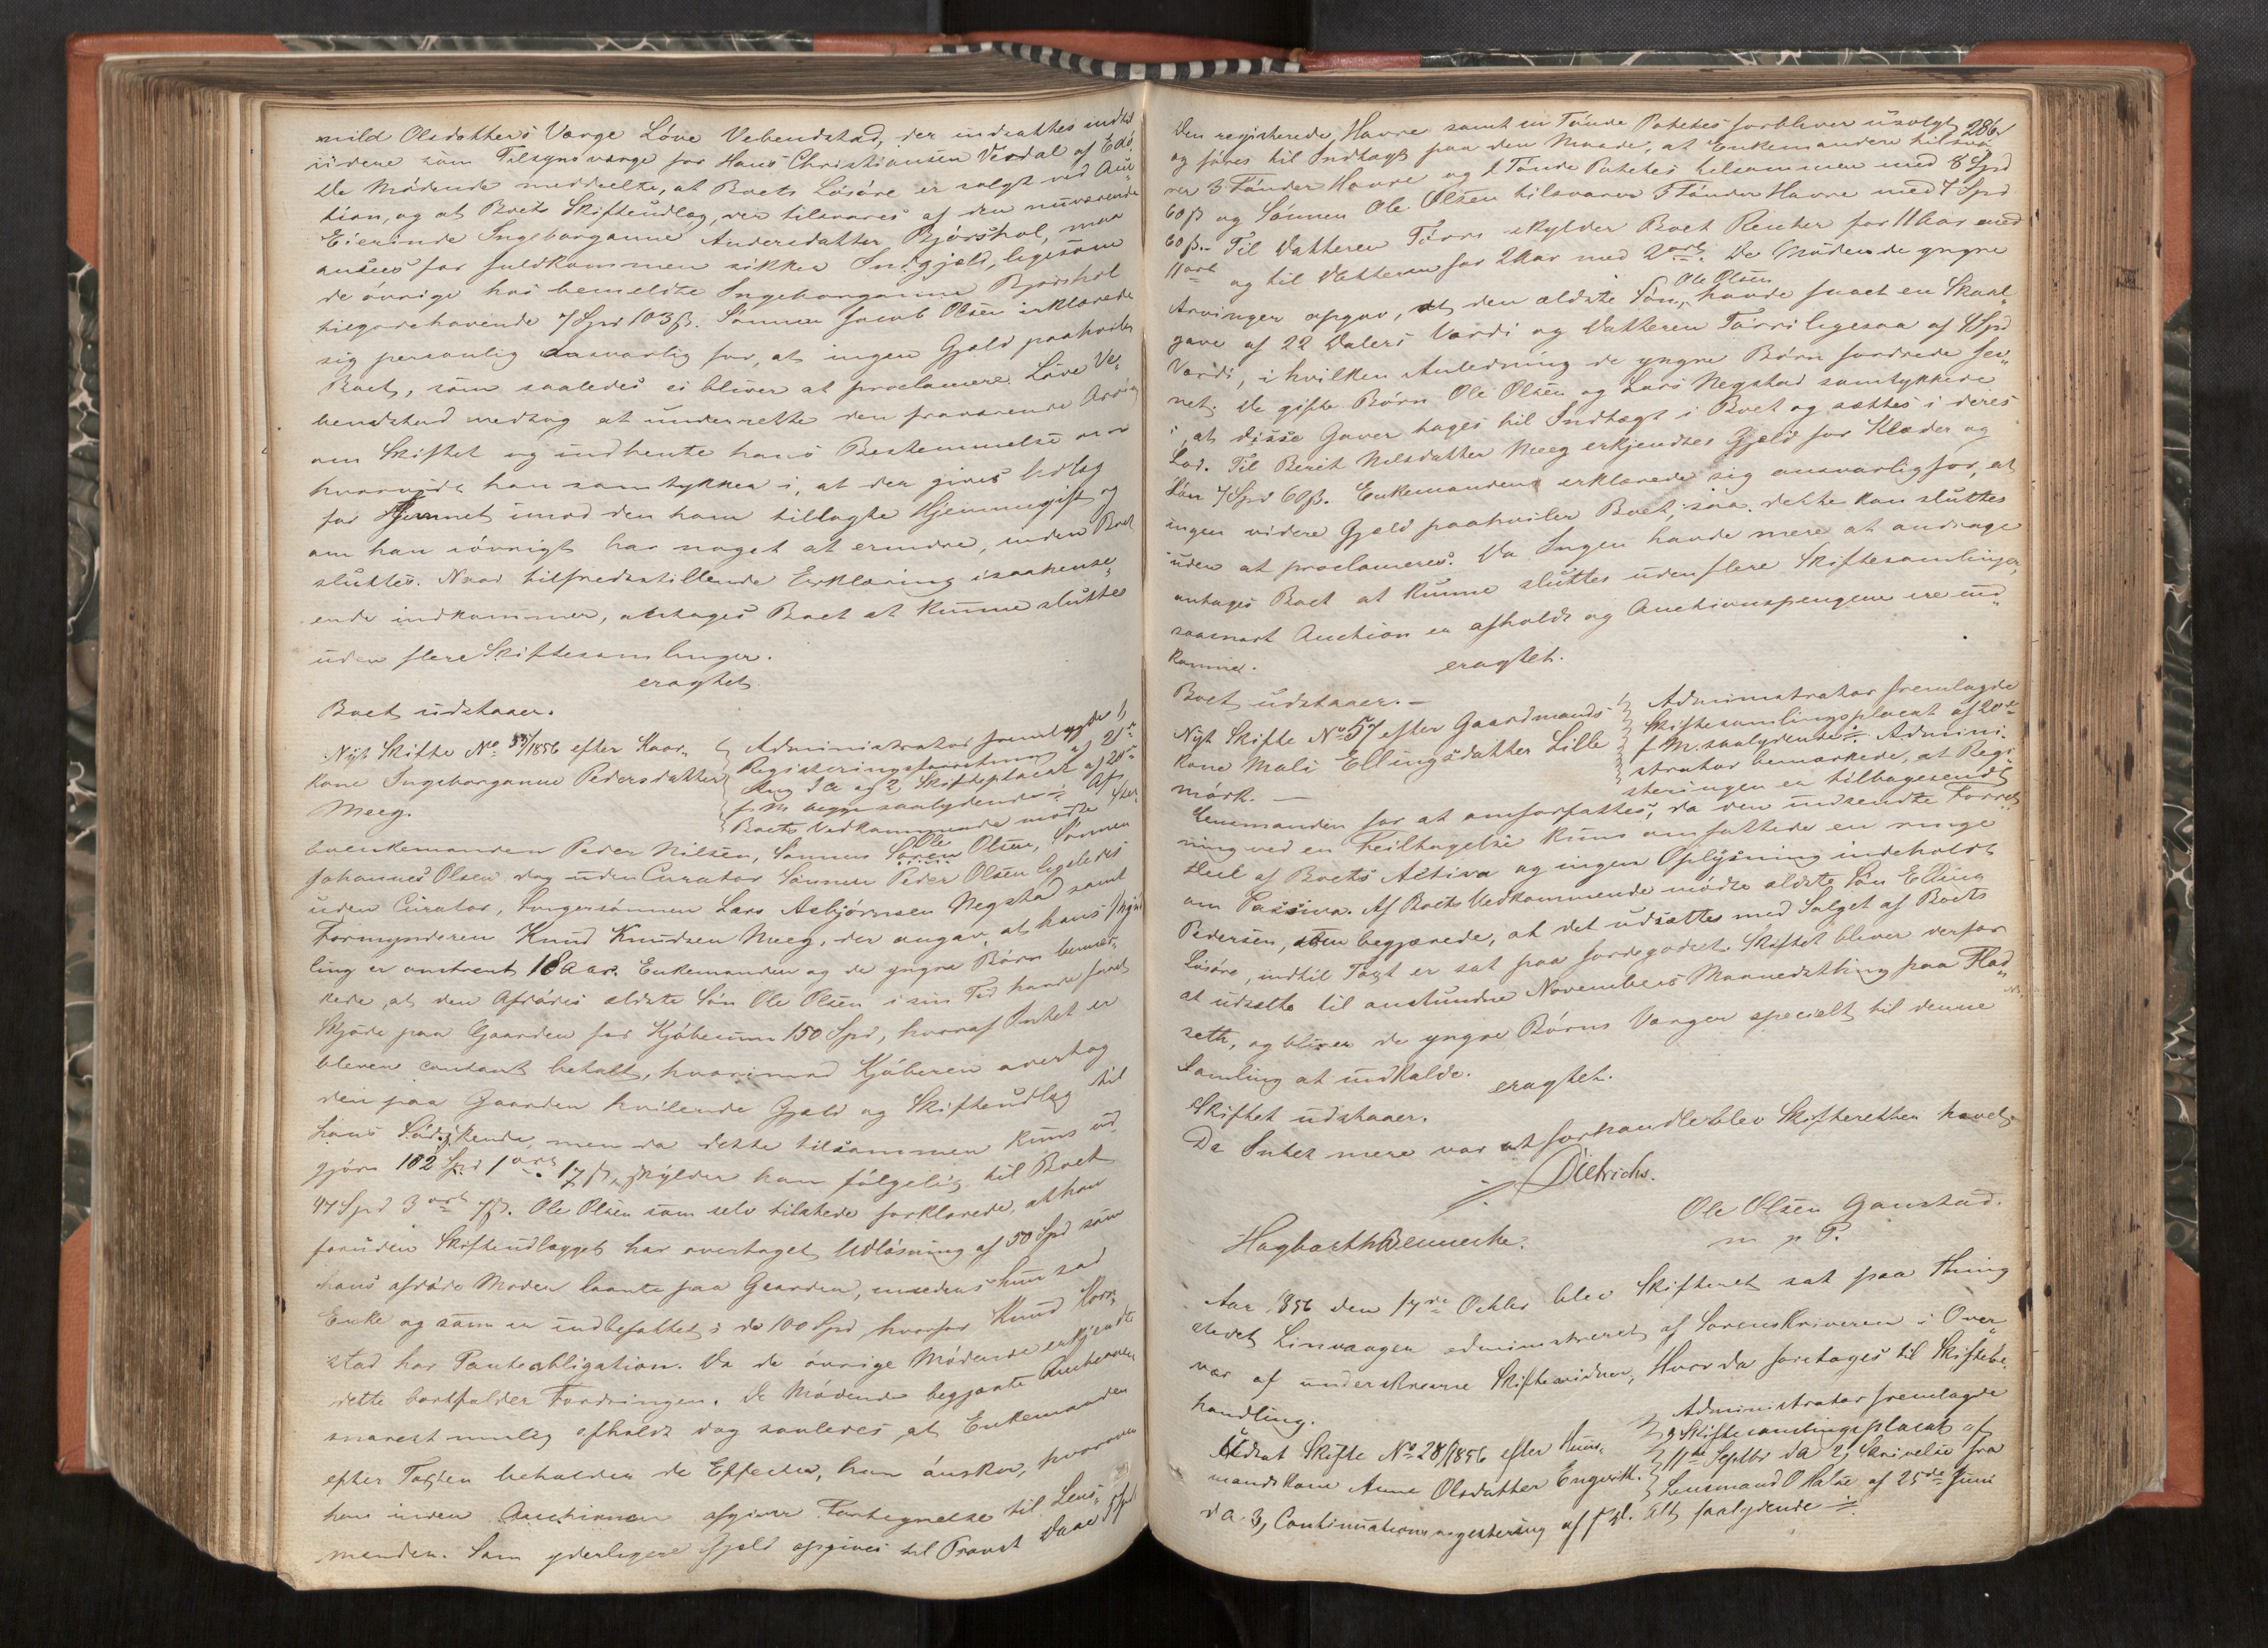 mild Olsdatters Værge Löve Vebenstad, der indsattes indtil
videre som Tilsynsværge for Hans Christiansen Vevdal af Edö.
De Mödende meddeelte, at Boets Lösöre er solgt ved Auc„
tion, og at Boets Skifteudlæg, der tilsvares af den nuværende
Eierinde Ingeborganne Andersdatter Bjørshol, maa
ansees for fuldkommen sikker Indgjæld, ligesom
de övrige hos bemeldte Ingeborganne Bjørshol
tilgodehavende 7 Spd 103 ß. Sönnen Jacob Olsen erklærede
sig personlig ansvarlig for, at ingen Gjæld paahviler
Boet, som saaledes ei bliver at proclamere. Löve Ve„
benstad medtog at underrette den fraværende Arving
om Skiftet og indhente hans Bestemmelse om
hvorvidt han samtykker i, at der gives Udlæg
for Hjemmet imod den ham tillagte Hjemmegift og
om han iövrigt har noget at erindre, inden Boet
sluttes. Naar tilfredsstillende Erklæring isaahense„
ende indkommer, antages Boet at kunne sluttes
uden flere Skiftesamlinger.
eragtet.
Boet udstaaer.
Nyt Skifte No 55/1856 efter Kaar„
kone Ingeborganne Pedersdatter
Meeg.
Administrator fremlagde 1,
Registeringsforretning af 21de
Aug d A og 2, Skifteplacat af 20de
f M begge saalydende ÷ Af
Boets Vedkommende mödte Efter„
Ole
boenkemanden Peder Nilsen, Sönnen Sören Olsen, Sönnen
Johannes Olsen dog uden Curator Sönnen Peder Olsen ligeledes
uden Curator, Svigersönnen Lars Asbjörnsen Negstad samt
Formynderen Knud Knudsen Meeg, der angav, at hans Mynd„
ling er omtrent 18 Aar. Enkemanden og de yngre Börn bemær„
kede, at den Afdödes ældste Sön Ole Olsen i sin Tid havde faaet
Skjöde paa Gaarden for Kjöbesum 150 Spd, hvoraf Intet er
bleven contant betalt, hvorimod Kjöberen overtog
den paa Gaarden hvilende Gjæld og Skifteudlæg til
hans Södskende, men da dette tilsammen kuns ud„
gjör 102 Spd 1 ort 17 ß, skylder han fölgelig til Boet
47 Spd 3 ort 7 ß. Ole Olsen som selv tilstede forklarede, at han
foruden Skifteudlægget har overtaget Udlösning af 50 Spd som
hans afdöde Moder laante paa Gaarden, imedens hun sad
Enke og som er indbefattet i de 100 Spd, hvorfor Knud Kors„
stad har Panteobligation. Da de övrige Mödende erkjendte
dette bortfalder Fordringen. De Mödende begjærte Auctionen
snarest mulig afholdt dog saaledes, at Enkemanden
efter Taxten beholder de Effecter, han önsker, hvorover
han inden Auctionen afgiver Fortegnelse til Lens„
manden. Som yderligere Gjæld opgives til Provst Daae 5 Spd
286
Den registerede Havre samt en Tönde Potetes forbliver usolgt,
og föres til Indtægt paa den Maade, at Enkemanden tilsva„
rer 3 Tönder Havre og 1 Tönde Potetes tilsammen med 8 Spd
60 ß og Sönnen Ole Olsen tilsvarer 5 Tönder Havre med 7 Spd
60 ß. Til Datteren Törri skylder Boet Renter for 11 Aar med
11 ort og til Datteren for 2 Aar med 2 ort. De Mödende yngre
Ole Olsen
Arvinger opgav, at den ældste Sön, havde faaet en Skaal„
gave af 22 Dalers Værdi og Datteren Törri ligesaa af 4 Spd
Værdi, i hvilken Anledning de yngre Börn fordrede Jev„
net. De gifte Börn Ole Olsen og Lars Negstad samtykkede
i, at disse Gaver tages til Indtægt i Boet og sættes i deres
Lod. Til Berit Nilsdatter Meeg erkjendtes Gjæld for Klæder og
Lön 7 Spd 60 ß. Enkemanden erklærede sig ansvarlig for, at
ingen videre Gjæld paahviler Boet, saa dette kan sluttes
uden at proclameres. Da Ingen havde mere at andrage
antages Boet at kunne sluttes uden flere Skiftesamlinger,
saasnart Auction er afholdt og Auctionspengene ere ind„
komne.
eragtet.
Boet udstaaer.—
Nyt Skifte No 57 efter Gaardmands
kone Mali Ellingsdatter Lille
mörk.—
Administrator fremlagde
Skiftesamlingsplacat af 20de
f M. saalydende ÷ Admini„
strator bemærkede, at Regi„
steringen er tilbagesendt
Lensmanden for at omforfattes, da den indsendte Forret„
ning ved en Feiltagelse kuns omfattede en ringe
Deel af Boets Activa og ingen Oplysning indeholdt
om Passiva. Af Boets Vedkommende mödte ældste Sön Elling
Pedersen, som begjærede, at det udsættes med Salget af Boets
Lösöre, indtil Taxt er sat paa Jordegodset. Skiftet bliver derfor
at udsætte til anstundne Novembers Maanedsthing paa Flad„
seth, og bliver de yngre Börns Værger specielt til denne
Samling at indkalde.
eragtet.
Skiftet udstaaer.
Da Intet mere var at forhandle blev Skifteretten hævet.
Dietrichs.
Ole Olsen Gaustad.
m p P.
Hagbarth Bennecke.
Aar 1856 den 17de Octbr blev Skifteret sat paa Thing
stedet Linvaagen administreret af Sorenskriveren i Over„
vær af underskrevne Skiftevidner, Hvor da foretages til Skiftebe„
handling.
Udsat Skifte No 28/1856 efter Huus„
mandskone Anne Olsdatter Engvik.
Administrator fremlagde
1, Skiftesamlingsplacat af
11te Septbr d A 2, Skrivelse fra
Lensmand O Halse af 25de Juni
d A 3, Continuationsregistering af s D. Alt saalydende ÷